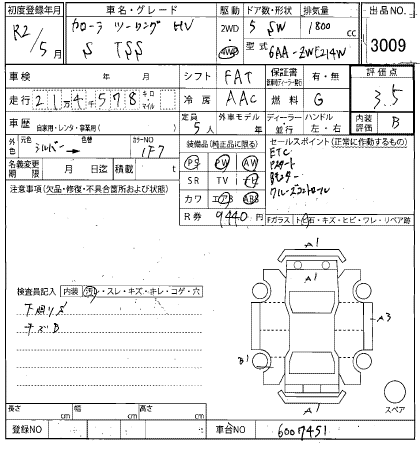 初度登録年月 車名・グレード 駆動 ドア数・形状 排気量 出品NO.
R2/5月 カローラ ツーリング HV 2WD 5 SW 1800 cc 3009
S TSS 4WD 型式 6AA-ZWE214W
車検 年 月 シフト FAT 保証書 有・無 評価点
走行 2 1万4千578 キロ マイル 冷房 AAC 燃料 G 3.5
車歴 自家用・レンタ・事業用( ) 定員 5人 外車モデル 年 ディーラー 並行 ハンドル 左・右 内装評価 B
外色 元色 シルバー 色替 カラーNO 1F7 装備品(純正品に限る) セールスポイント(正常に作動するもの)
名義変更期限 月 日迄 積載 t PS PW AW ETC
注意事項(欠品・修復・不具合箇所および状態) SR TV Pスタート
カワ エアB ABS Bモニター
クルーズコントロール
R券 9440円 Fガラス トビ石・キズ・ヒビ・ワレ・リペア跡
A1
検査員記入 内装 汚レ・スレ・キズ・キレ・コゲ・穴
A3
B1
A1
スペア
長さ cm 幅 cm 高さ cm
登録NO 車台NO 6007451